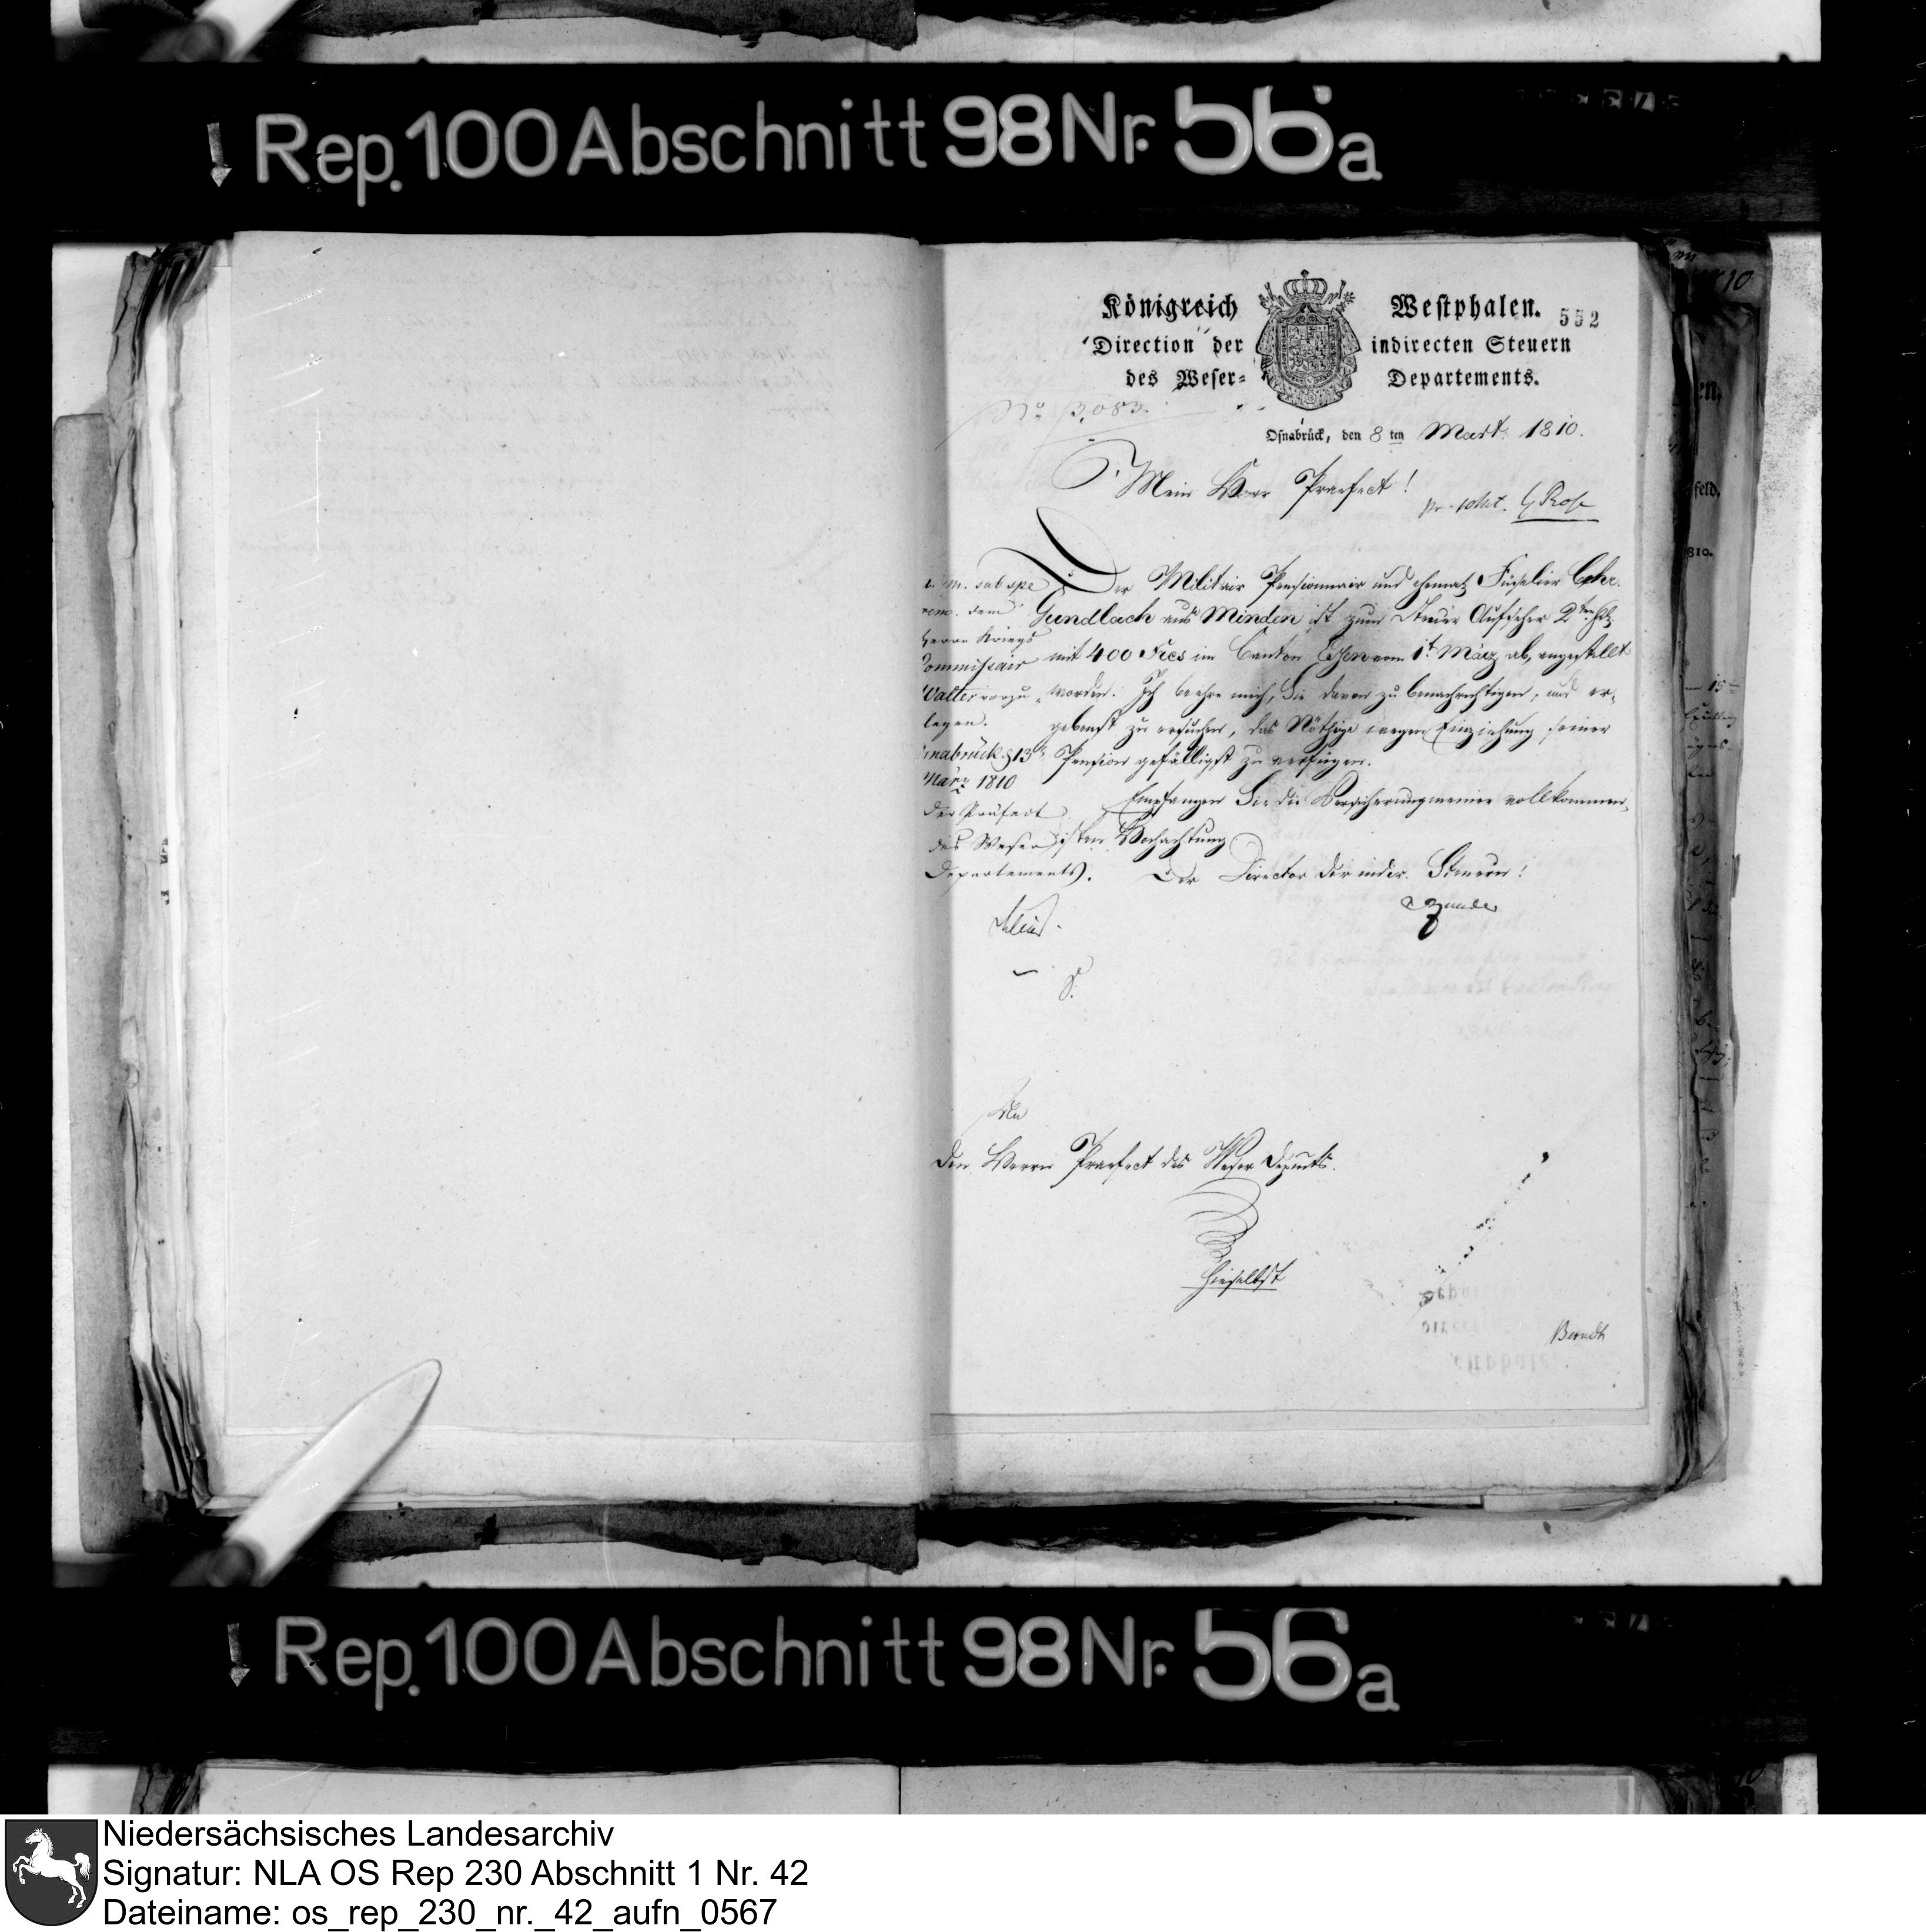 Rep. 100 Abschnitt 98 Nr. 56a
Königreich Westphalen.
552
Direction der indirecten Steuern
des Weser- Departements.
No 3,083.
Osnabrück, den 8 ten Mart. 1810.
Mein Herr Praefect!
Der Militair Pensionnair und ehemal. Füselier
Gundlach aus Minden ist zum Steuer Aufseher 2ter
mit 400 Frcs im Canton vom 1t März ab, angestellt
worden. Ich beehre mich, Sie davon zu benachrichtigen, und er-
gebenst zu ersuchen, das Nöthige wegen Einziehung seiner
Pension gefälligst zu verfügen.
Empfangen Sie die Versicherung meiner vollkommen-
sten Hochachtung
Der Director der indir. Steuern!
c. m. sub spe
rem. dem
Herrn Kriegs
Commissair
Walter vorzu
legen.
Osnabrück d 13t
März 1810
Der Präfect
des Weser
Departements.
An
den Herrn Praefect des Weser Depmts.
hieselbst
Berndt
Rep. 100 Abschnitt 98 Nr. 56a
Niedersächsisches Landesarchiv
Signatur: NLA OS Rep 230 Abschnitt 1 Nr. 42
Dateiname: os_rep_230_nr._42_aufn_0567